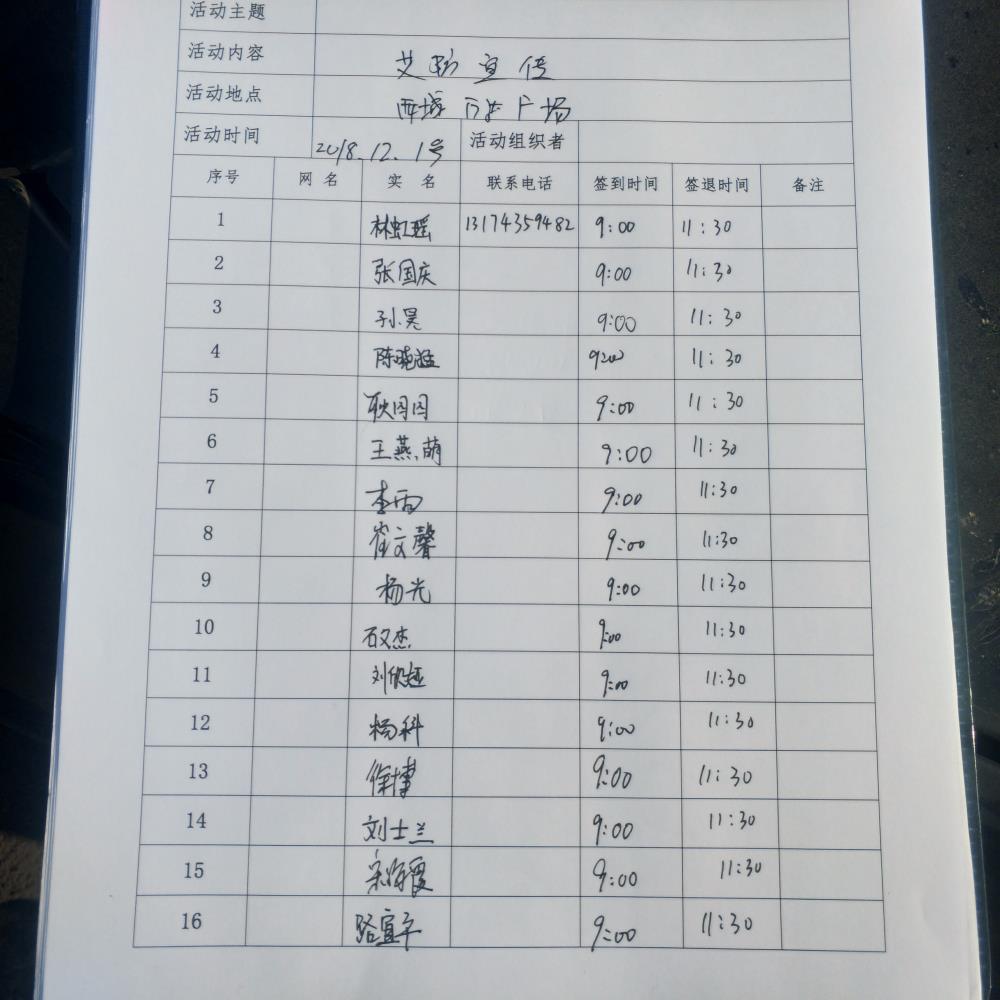 活动主题
活动内容 艾滋宣传
活动地点 西城广场
活动时间 2018.12.1号 活动组织者
序号 网名 实名 联系电话 签到时间 签退时间 备注
1 林虹瑶 13174359482 9:00 11:30
2 张国庆 9:00 11:30
3 孙昊 9:00 11:30
4 陈晓 9:00 11:30
5 耿囡囡 9:00 11:30
6 王燕萌 9:00 11:30
7 李雨 9:00 11:30
8 崔文馨 9:00 11:30
9 杨光 9:00 11:30
10 石文杰 9:00 11:30
11 刘欣 9:00 11:30
12 杨科 9:00 11:30
13 徐博 9:00 11:30
14 刘士兰 9:00 11:30
15 宋海霞 9:00 11:30
16 路宜平 9:00 11:30